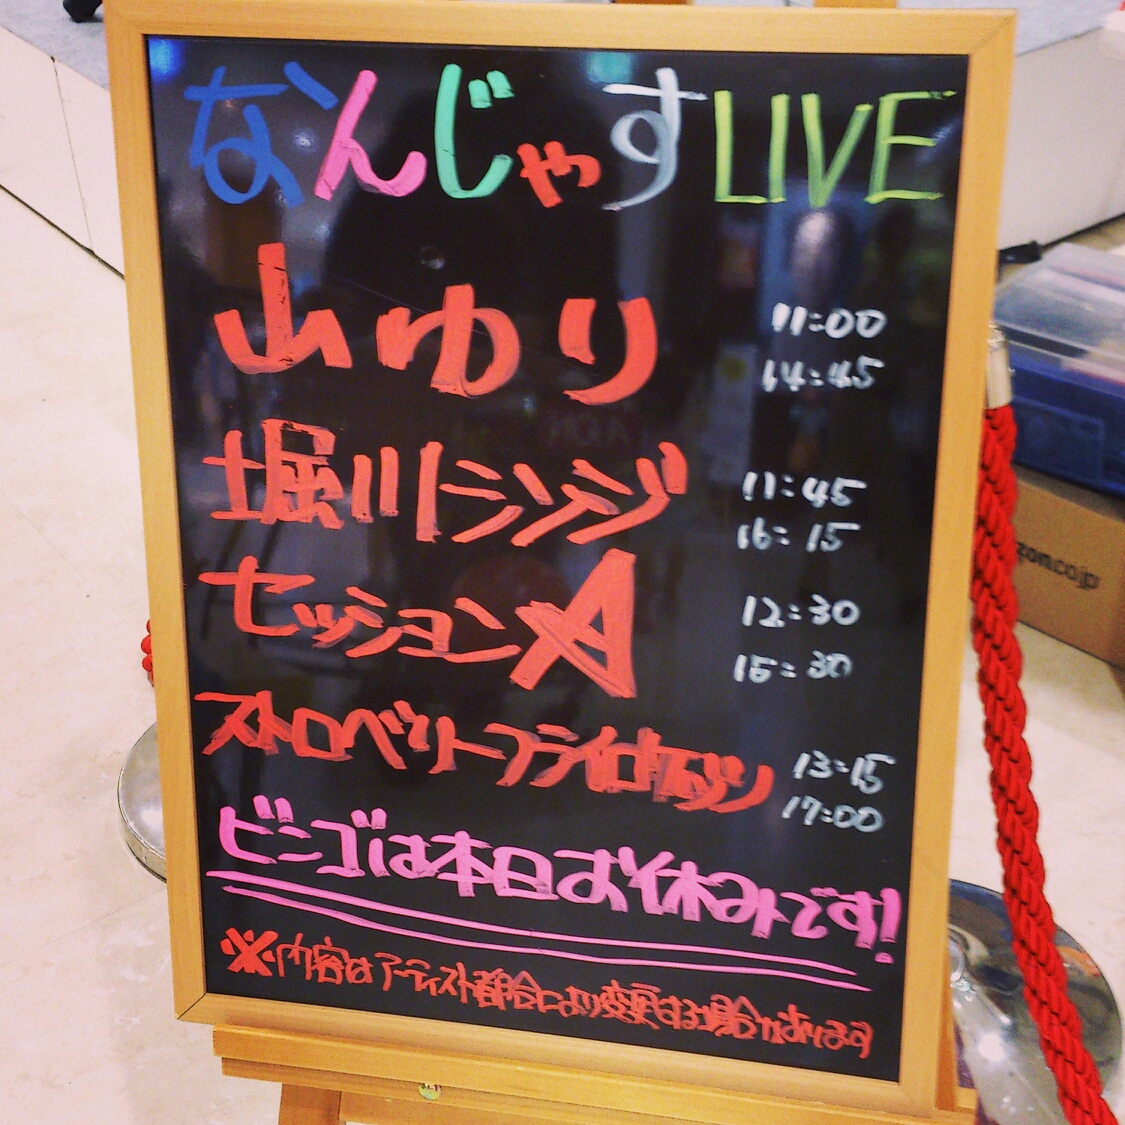 なんじゃすLIVE
山ゆり 11:00
14:45
堀川ランジ 11:45
16:15
セッション☆ 12:30
15:30
ストロベリーフライ 13:15
17:00
ビンゴは本日お休みです!
※内容はアーティスト都合により変更する場合があります
zon.co.jp